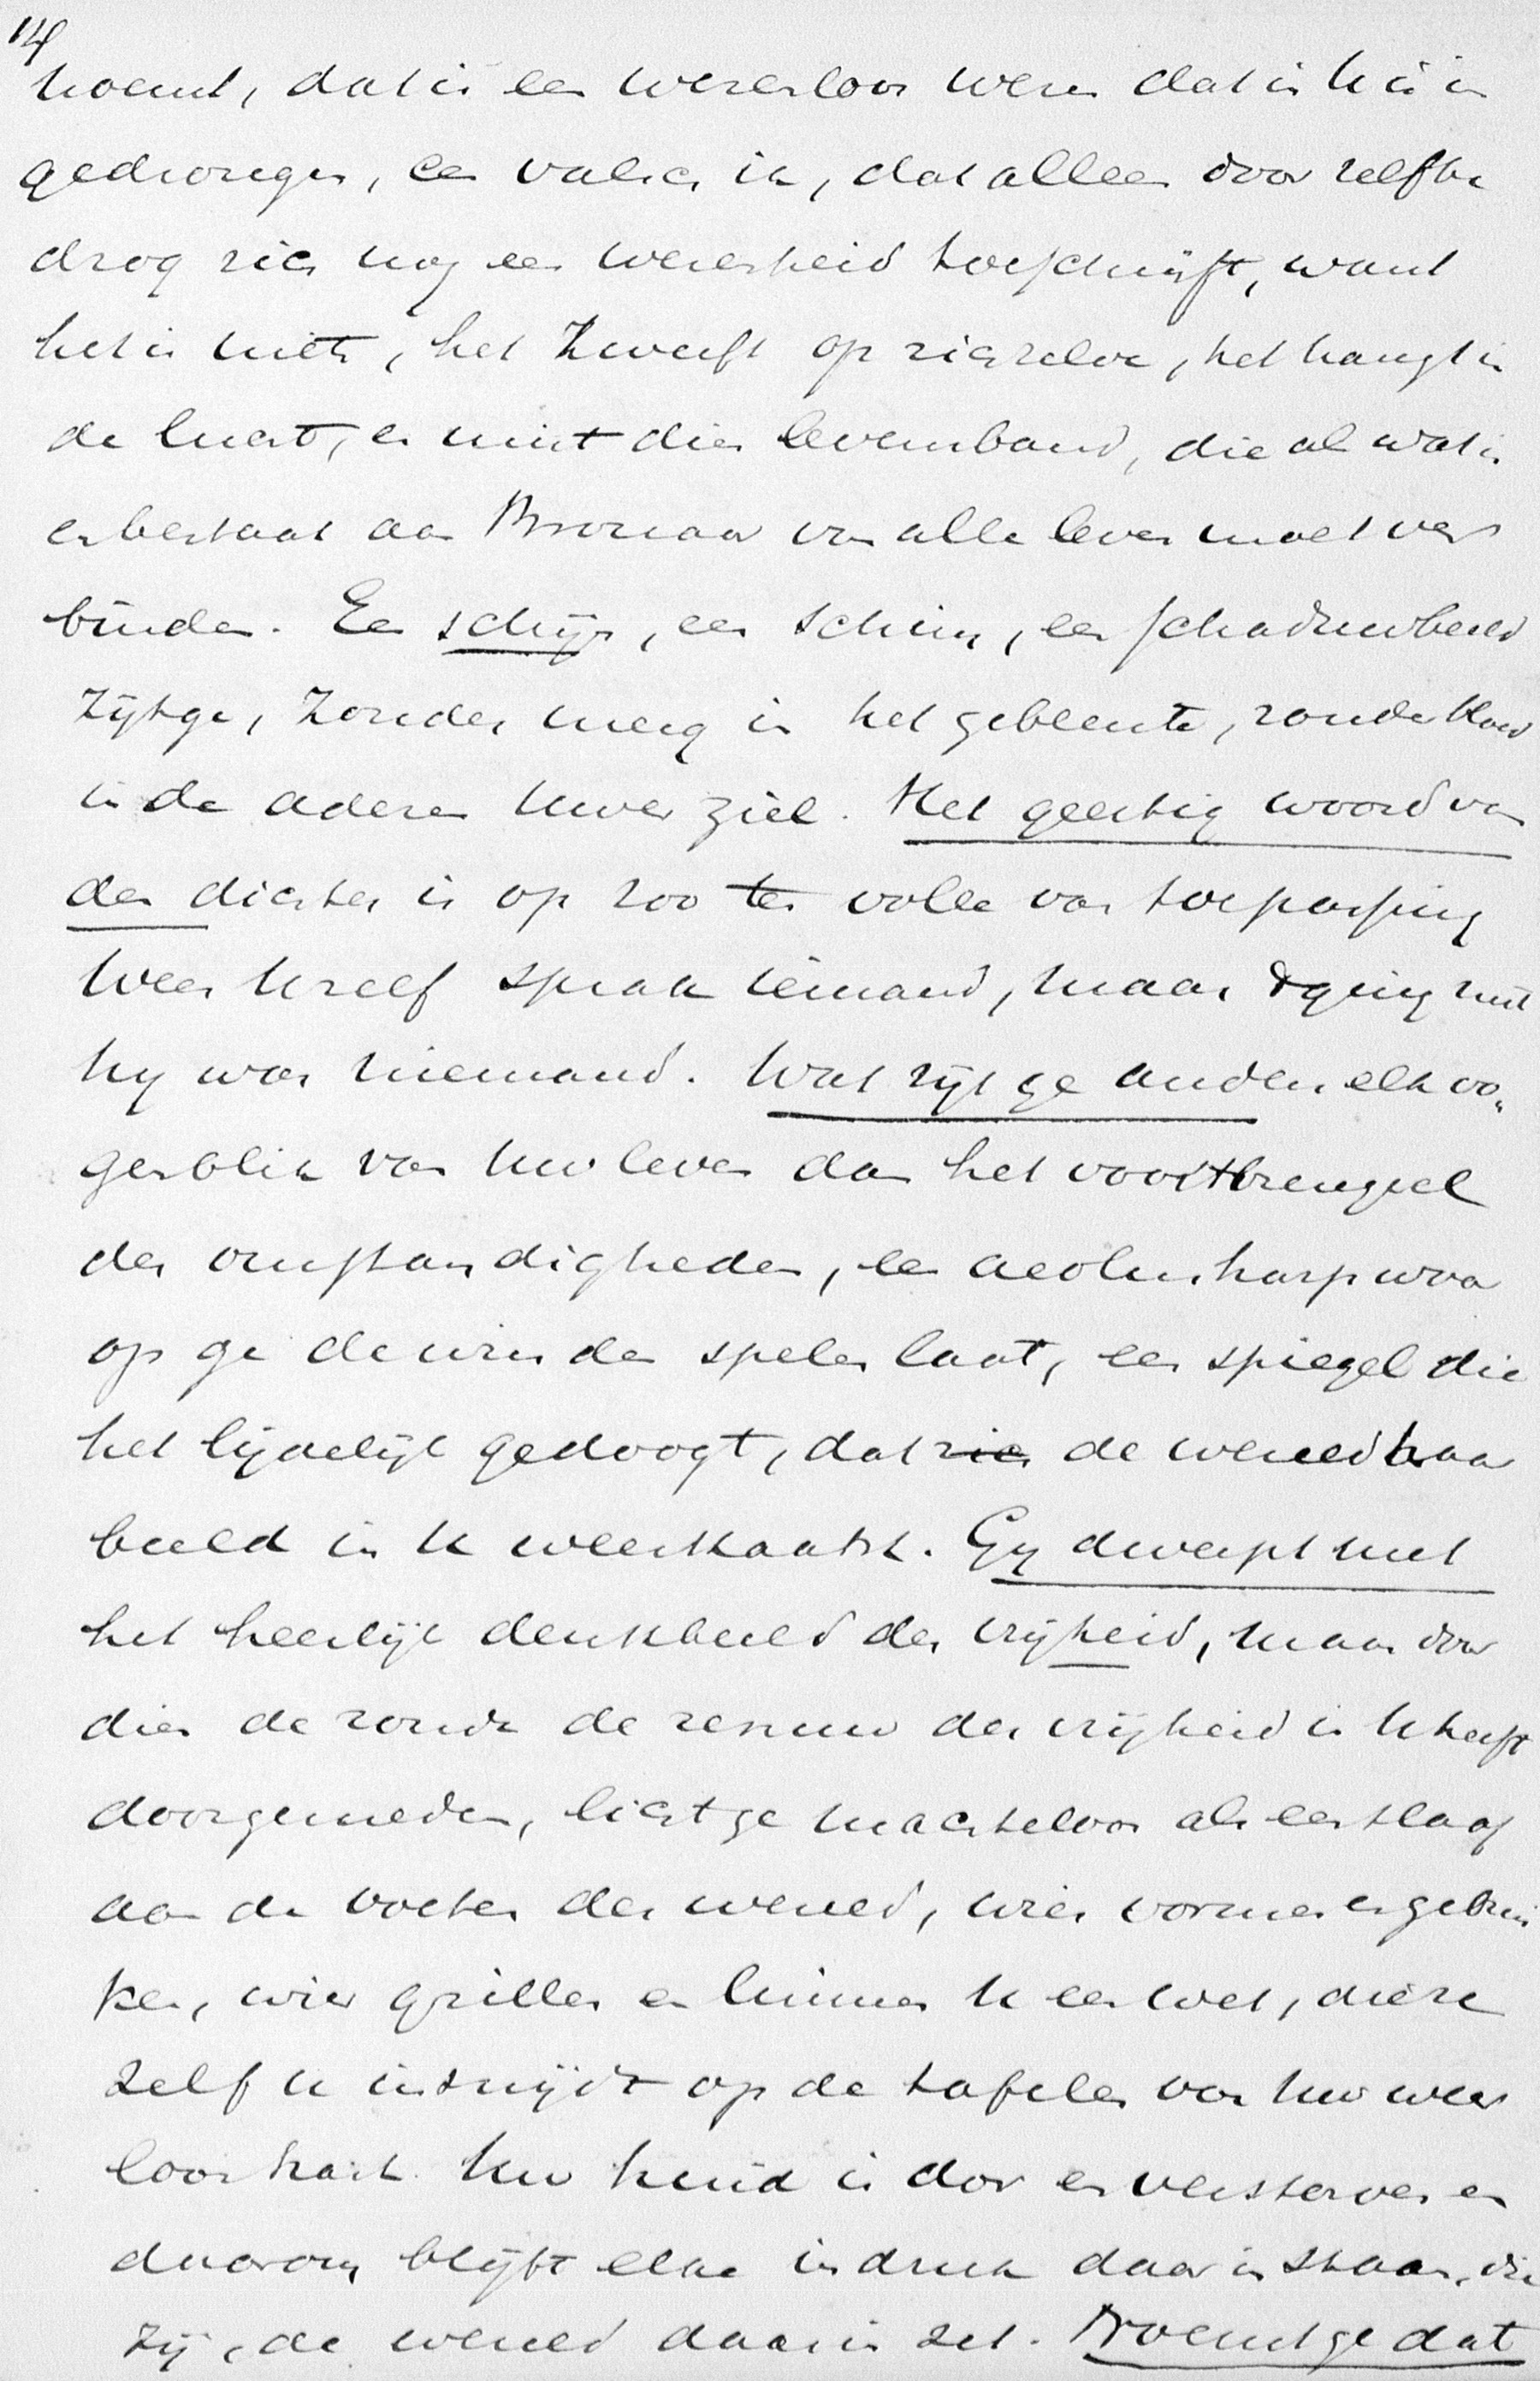 14
noemt, dat is een wezenloos wezen dat in U is in
gedrongen, een valsch ik, dat alleen door zelfbe
drog zich nog een wezenheid toeschrijft, want
het is niets, het zweeft op zichzelve, het hangt in
de lucht, er mist dien levensband, die al wat is
en bestaat aan Bronaar van alle leven moet ver
binden. Een schijn, een schim, een schaduwbeeld
zijt ge, zonder merg in het gebeente, zonder bloed
in de aderen uwer ziel. Het geestig woord van
den dichter is op zoo ten volle van toepassing
Weer U zelf sprak iemand, maar 't ging niet
hy was niemand. Wat zijt ge anders elk oo„
genblik van Uw leven dan het voortbrengsel
der omstandigheden, een aeolusharp waar
op ge de winden spelen laat, een spiegel die
het lijdelijk gedoogt, dat zich de wereld haar
beeld in U weerkaatst. Gy dweept met
het heerlijk denkbeeld der vrijheid, maar door
dien de zonde de zenuw der vrijheid in U heeft
doorgesneden, ligt ge machteloos als een slaaf
aan de voeten der wereld, wier vormen en gebrui
ken, wier grillen en luimen U een wet, die ze
zelf U insnijdt op de tafelen van Uw weer
loos hart. Uw huid is dor en verstorven en
daarom blijft elke indruk daar in staan, die
zij, de wereld daarin zet. Noemt ge dat